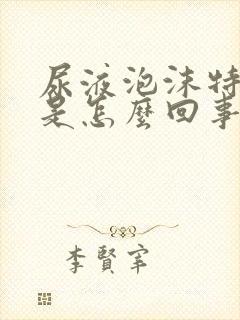 尿液泡沫特
是怎麼回事
李賢宰